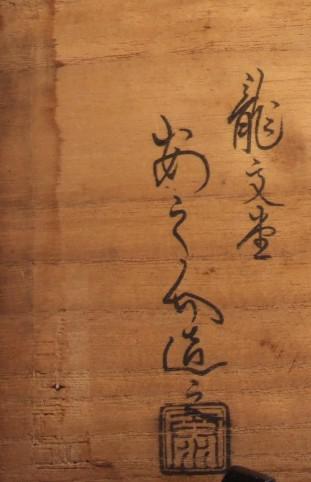 龍文堂
安之介造之